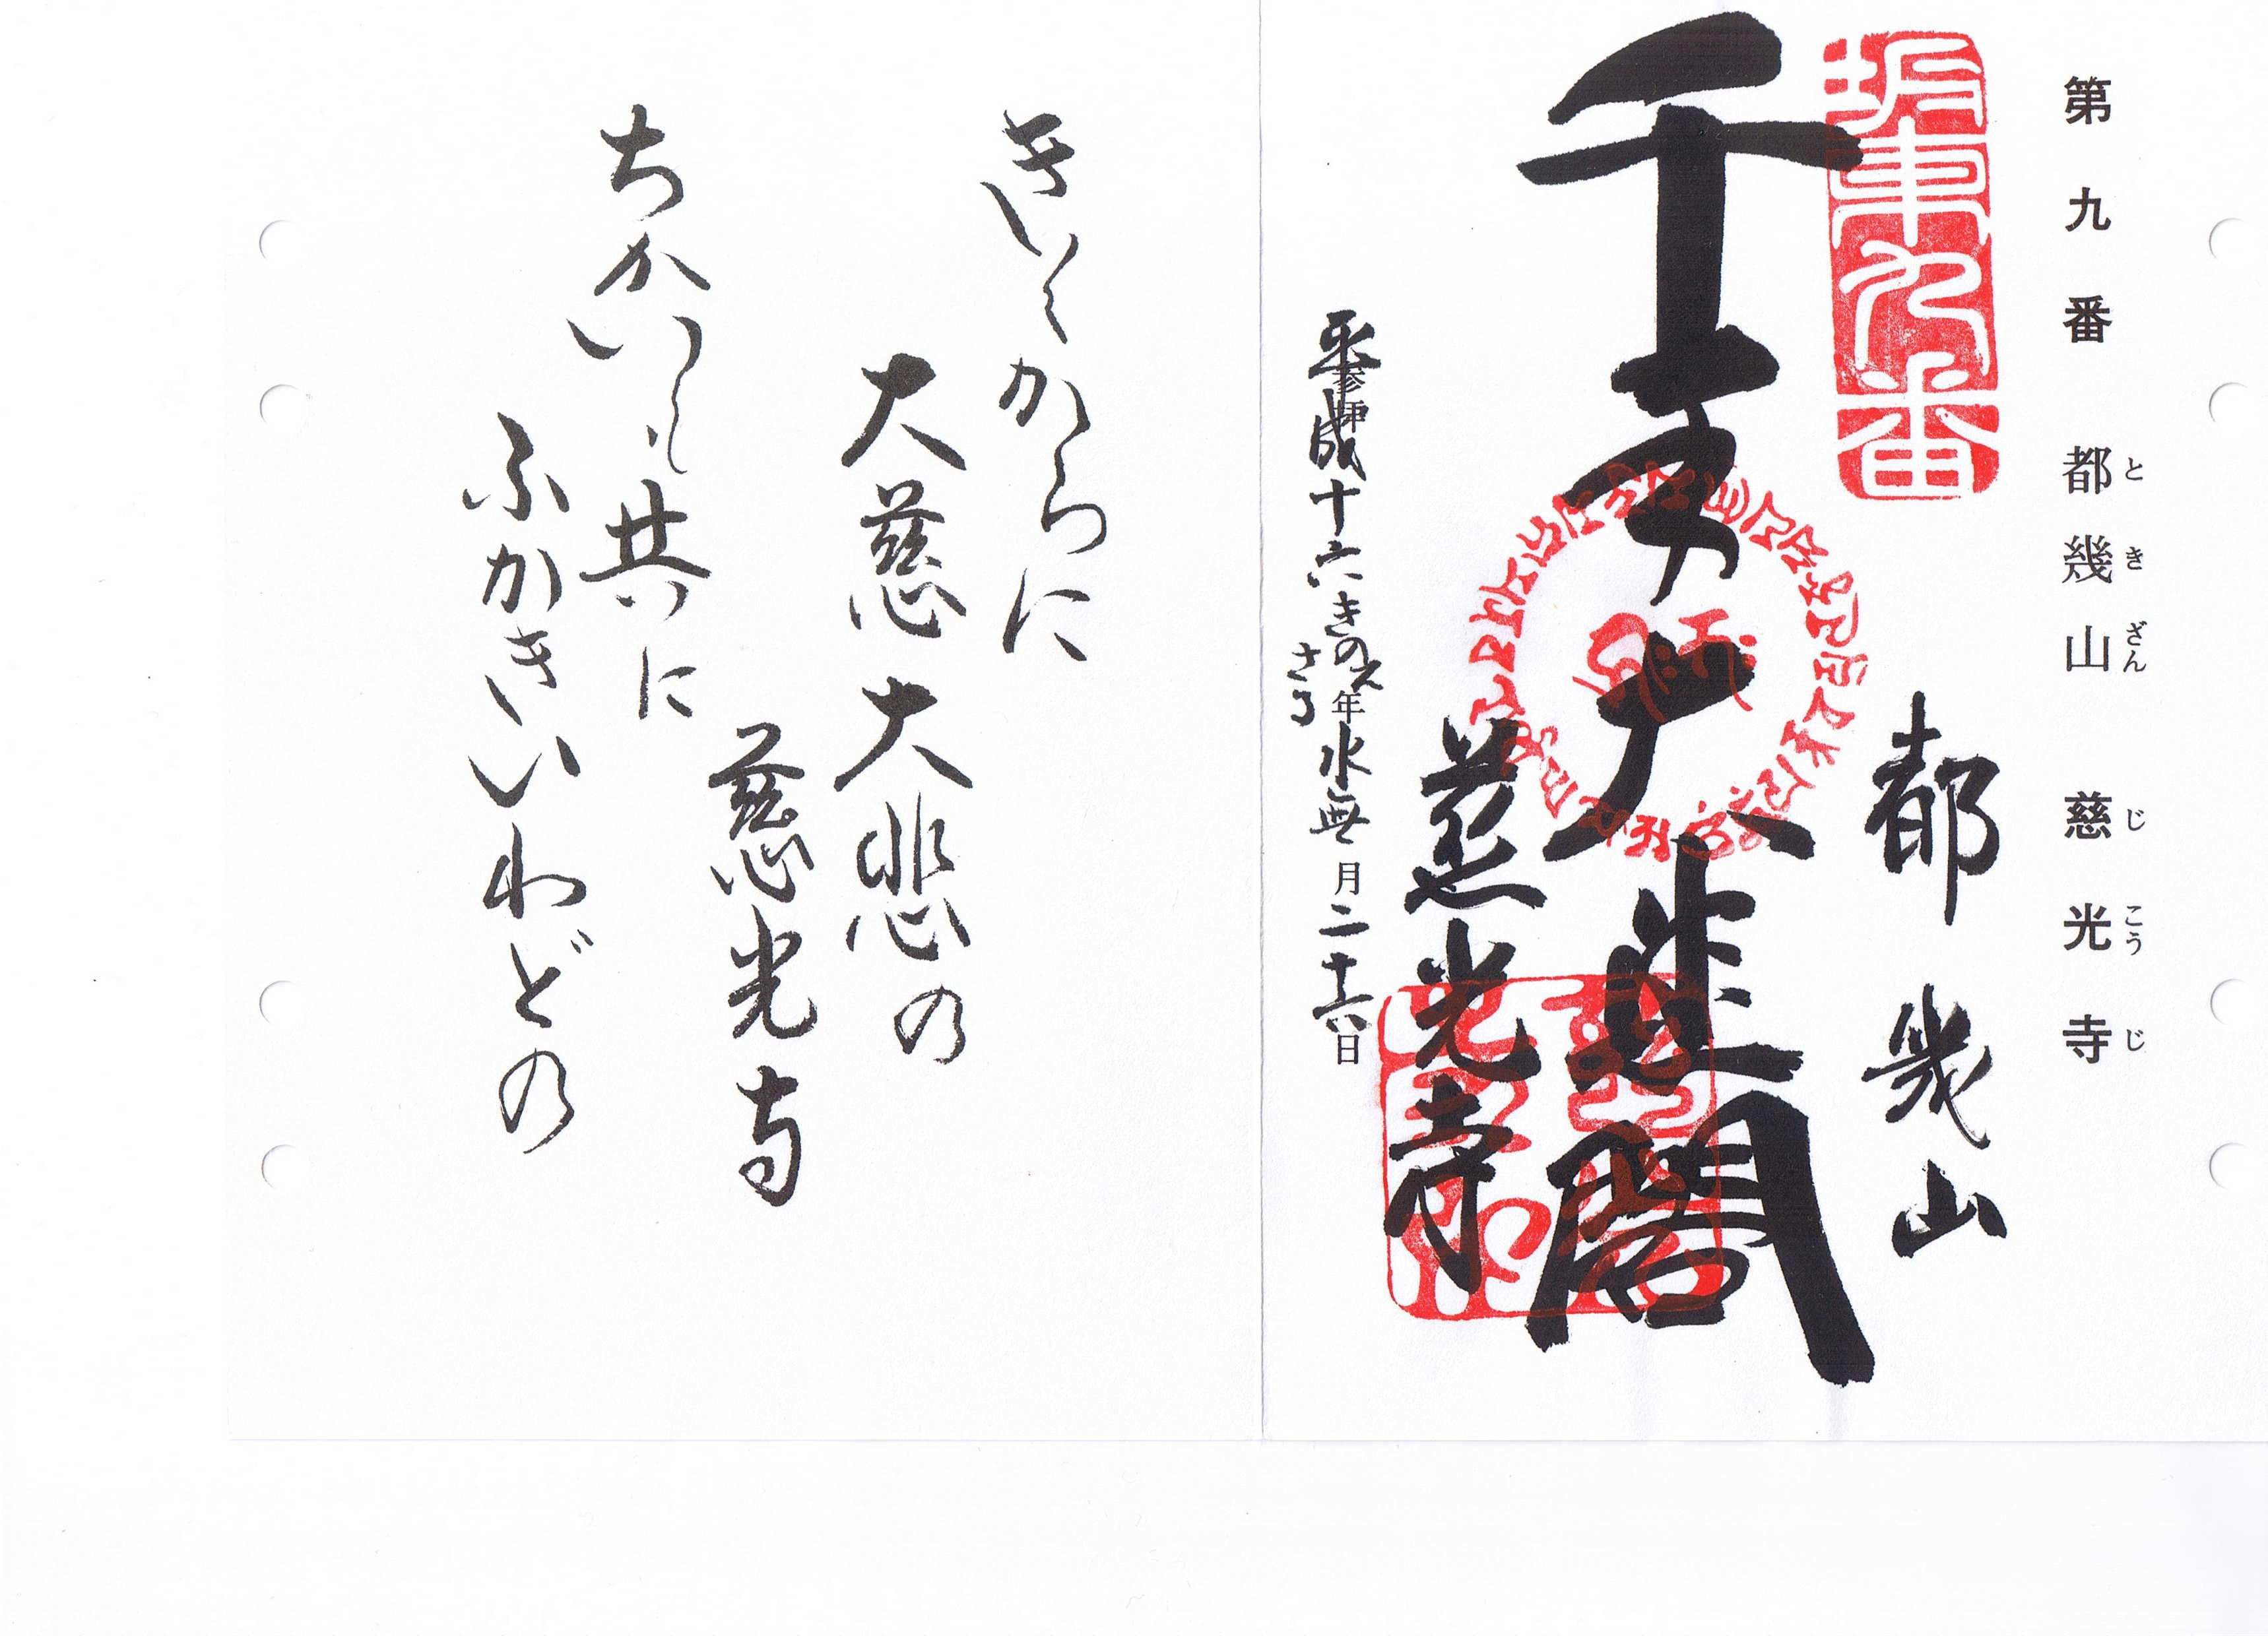 第九番 都幾山 慈光寺
と き ざん じ こう じ
坂東九番
都幾山
千手大悲閣
慈光寺
参拝 平成十六きのえさる年水無月二十六日
きくからに
大慈大悲の
慈光寺
ちかいも共に
ふかきいわどの